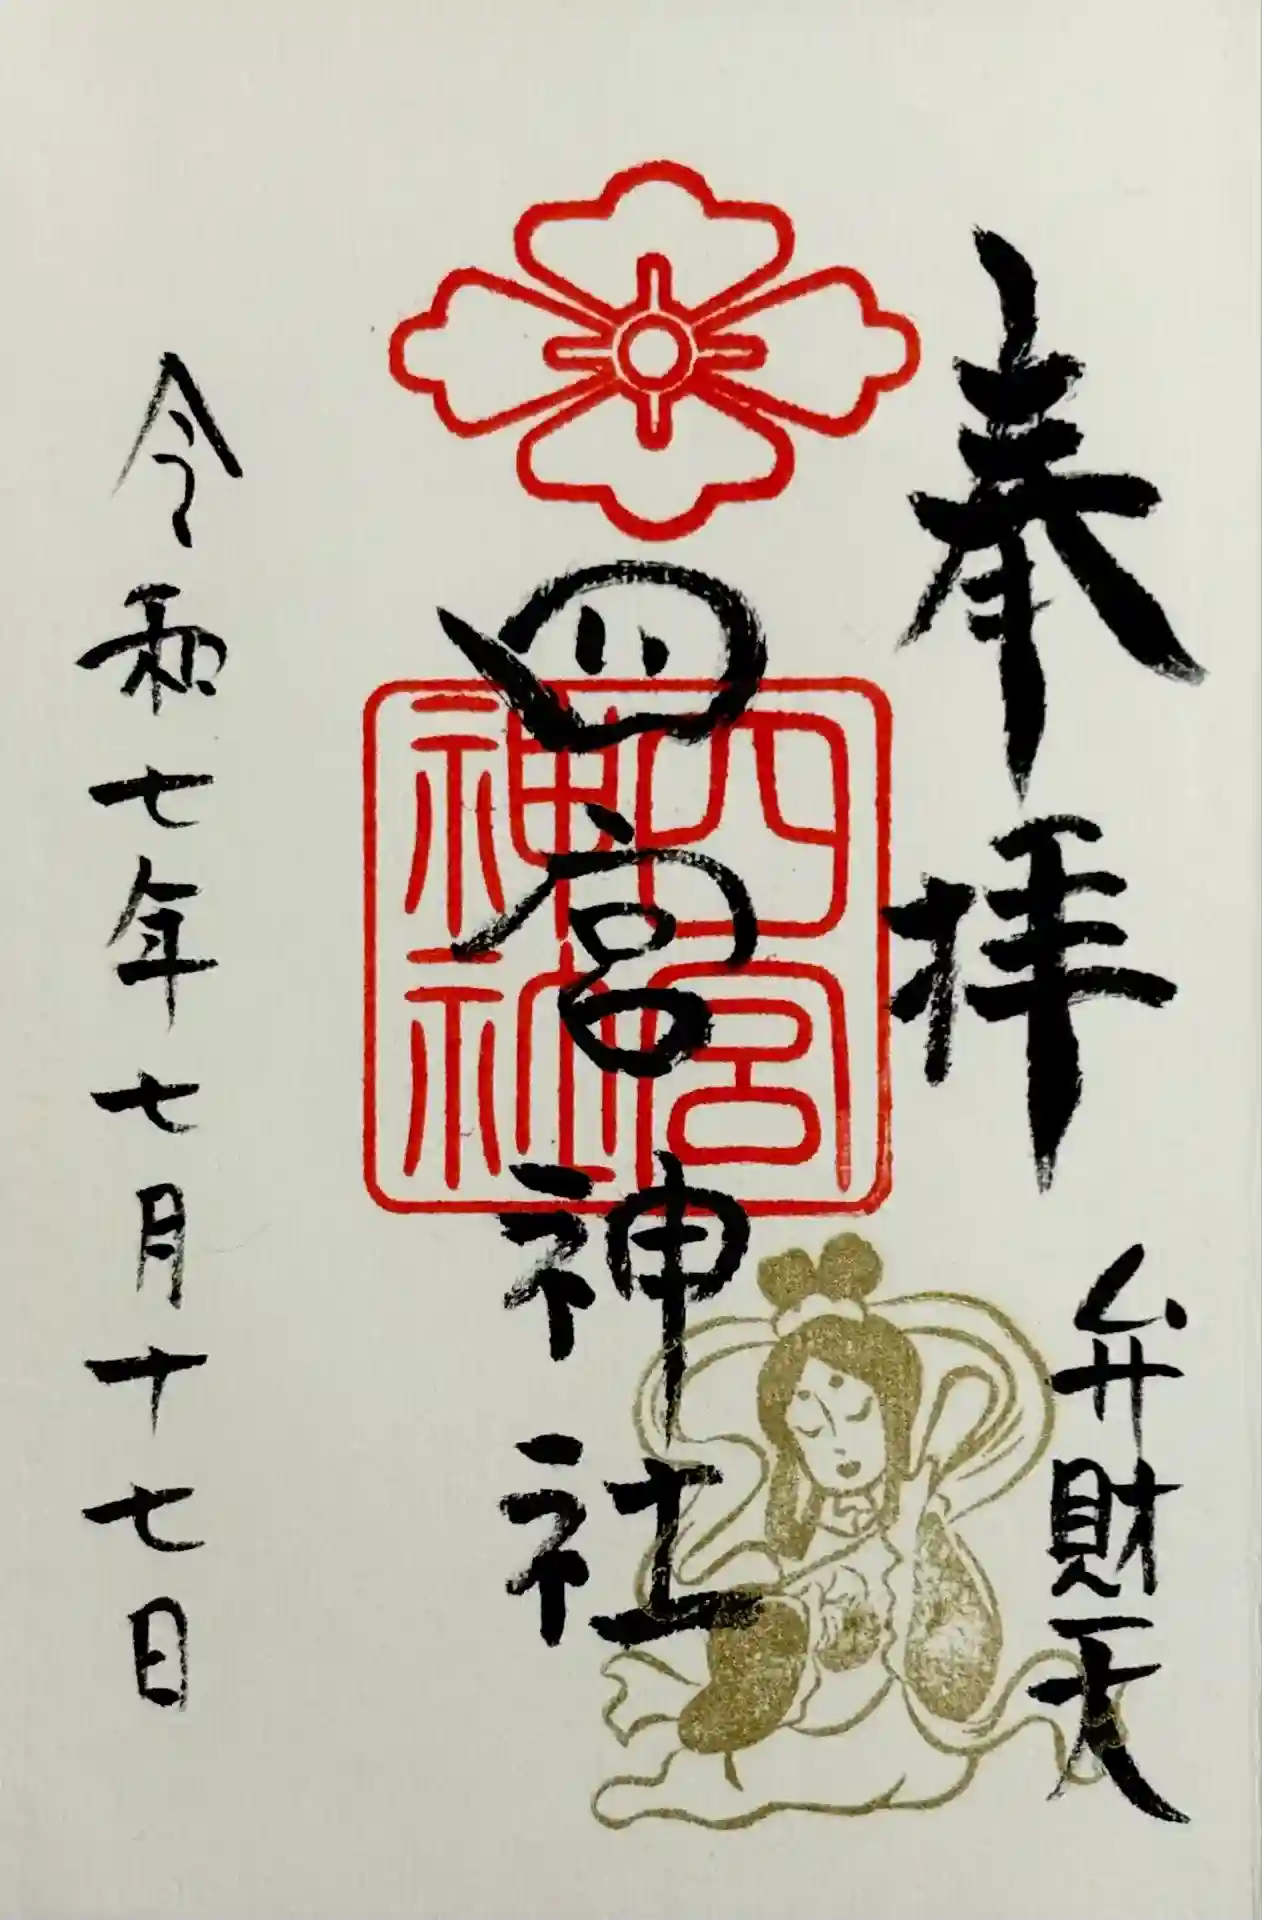 奉拝
弁財天
四宮神社
四宮
神社
令和七年七月十七日